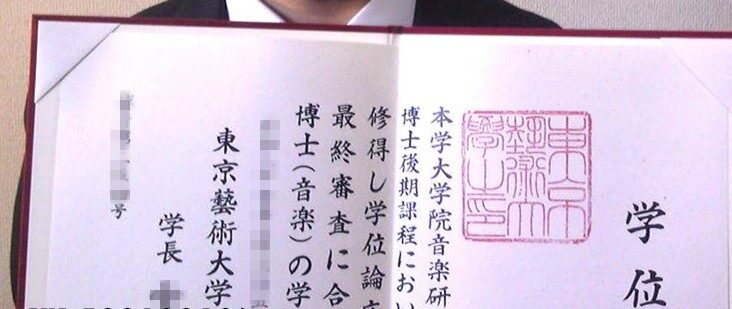 学位
東京藝術大學之印
本学大学院音楽研
博士後期課程におい
修得し学位論文
最終審査に合
博士(音楽)の学
東京藝術大学
学長
号